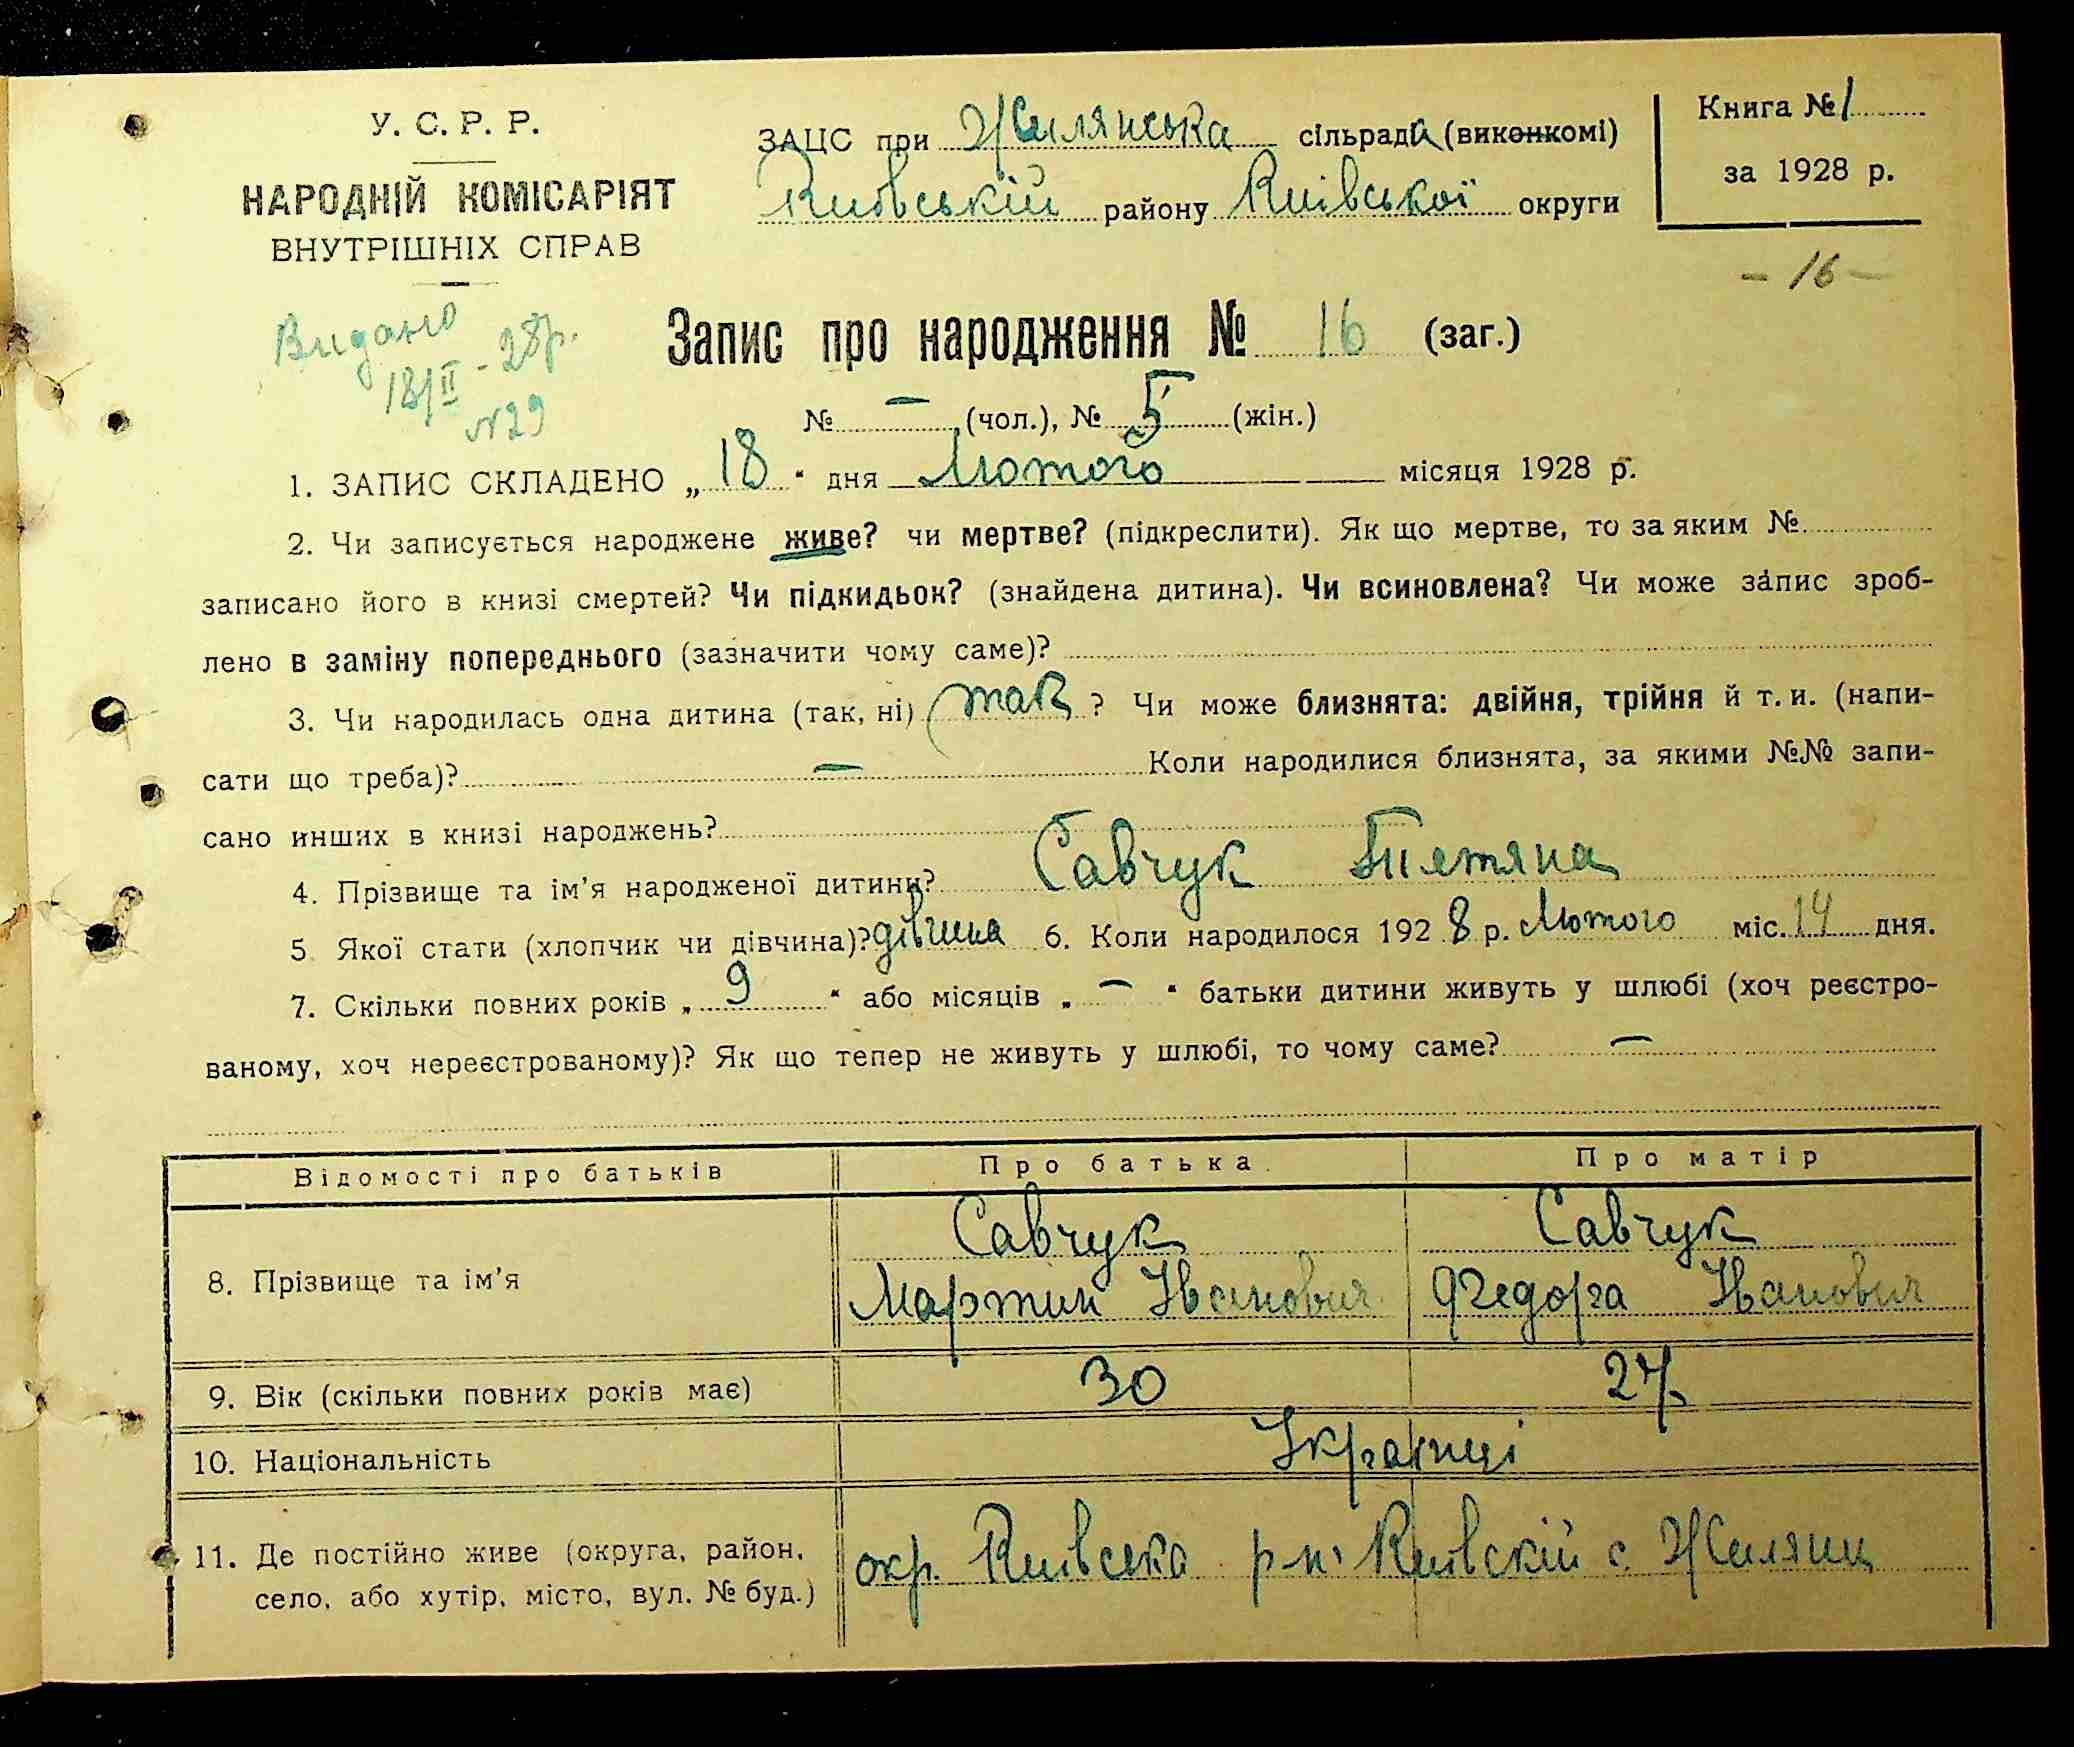 У. С. Р. Р.
НАРОДНІЙ КОМІСАРІЯТ
ВНУТРІШНІХ СПРАВ
ЗАЦС при Жилянська сільрада (виконкомі)
Київській району Київської округи
Книга № 1
за 1928 р.
- 16 -
Видано
18/II - 28р.
№ 29
Запис про народження № 16 (заг.)
№ — (чол.), № 5 (жін.)
1. ЗАПИС СКЛАДЕНО „ 18 “ дня Лютого місяця 1928 р.
2. Чи записується народжене живе? чи мертве? (підкреслити). Як що мертве, то за яким №
записано його в книзі смертей? Чи підкидьок? (знайдена дитина). Чи всиновлена? Чи може запис зроб-
лено в заміну попереднього (зазначити чому саме)?
3. Чи народилась одна дитина (так, ні) так ? Чи може близнята: двійня, трійня й т. и. (напи-
сати що треба)? — Коли народилися близнята, за якими №№ запи-
сано инших в книзі народжень?
4. Прізвище та ім’я народженої дитини? Савчук Тетяна
5. Якої стати (хлопчик чи дівчина)? дівчина 6. Коли народилося 1928 р. Лютого міс. 14 дня.
7. Скільки повних років „ 9 “ або місяців „ — “ батьки дитини живуть у шлюбі (хоч реєстро-
ваному, хоч нереєстрованому)? Як що тепер не живуть у шлюбі, то чому саме? —
Відомості про батьків Про батька Про матір
8. Прізвище та ім’я Савчук Мартин Іванович Савчук Іванович
9. Вік (скільки повних років має) 30 27
10. Національність Українці
11. Де постійно живе (округа, район, село, або хутір, місто, вул. № буд.) окр. Київська р-н Київскій с. Жиляни